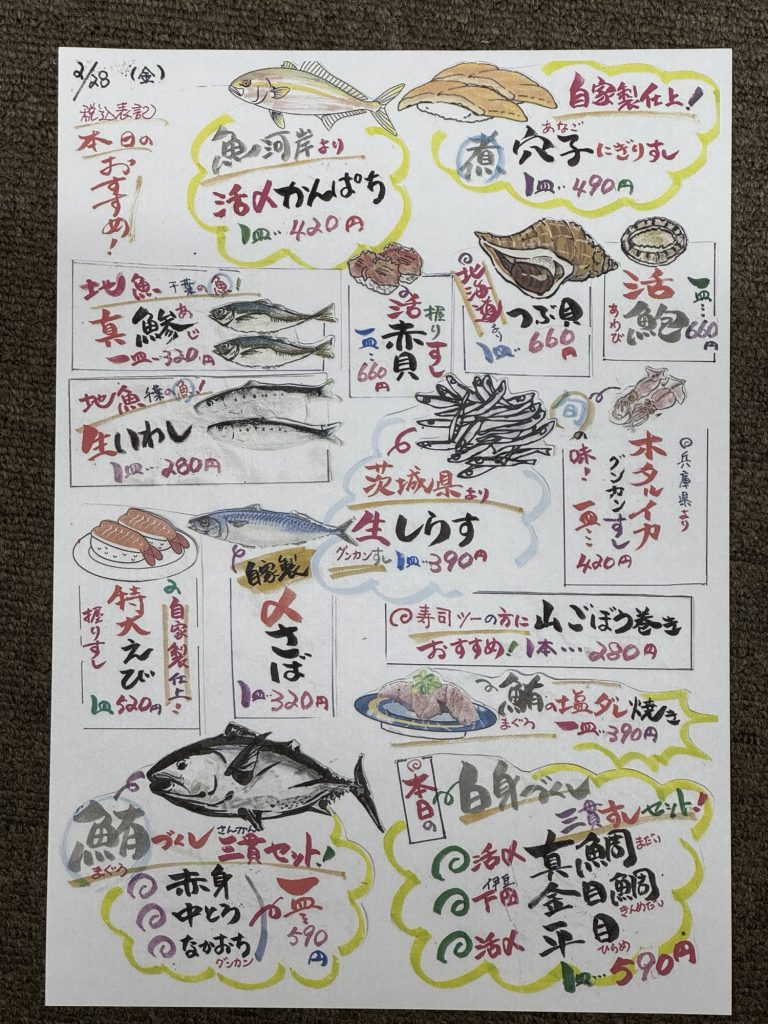 2/28 (金)
税込表記
本日の
おすすめ!
魚河岸より
活〆かんぱち
1皿…420円
自家製仕上!
あなご
煮穴子にぎりすし
1皿…490円
地魚 千葉の魚!
真鯵
あじ
一皿…320円
活赤貝
握りすし
一皿…660円
北海道より
つぶ貝
1皿…660円
活鮑
あわび
一皿…660円
地魚 千葉の魚!
生いわし
1皿…280円
茨城県より
生しらす
グンカンすし 1皿…390円
旬の味!
兵庫県より
ホタルイカ
グンカンすし
一皿…420円
自家製仕上!
特大えび
握りすし
1皿520円
自家製
〆さば
1皿…320円
寿司ツーの方に 山ごぼう巻き
おすすめ! 1本…280円
鮪の塩ダレ焼き
まぐろ
一皿…390円
鮪づくし 三貫セット!
まぐろ
さんかん
赤身
中とろ
なかおち
グンカン
一皿…590円
本日の
白身づくし
三貫すしセット!
活〆 真鯛 まだい
伊豆
下田 金目鯛
きんめだい
活〆 平目
ひらめ
1皿…590円